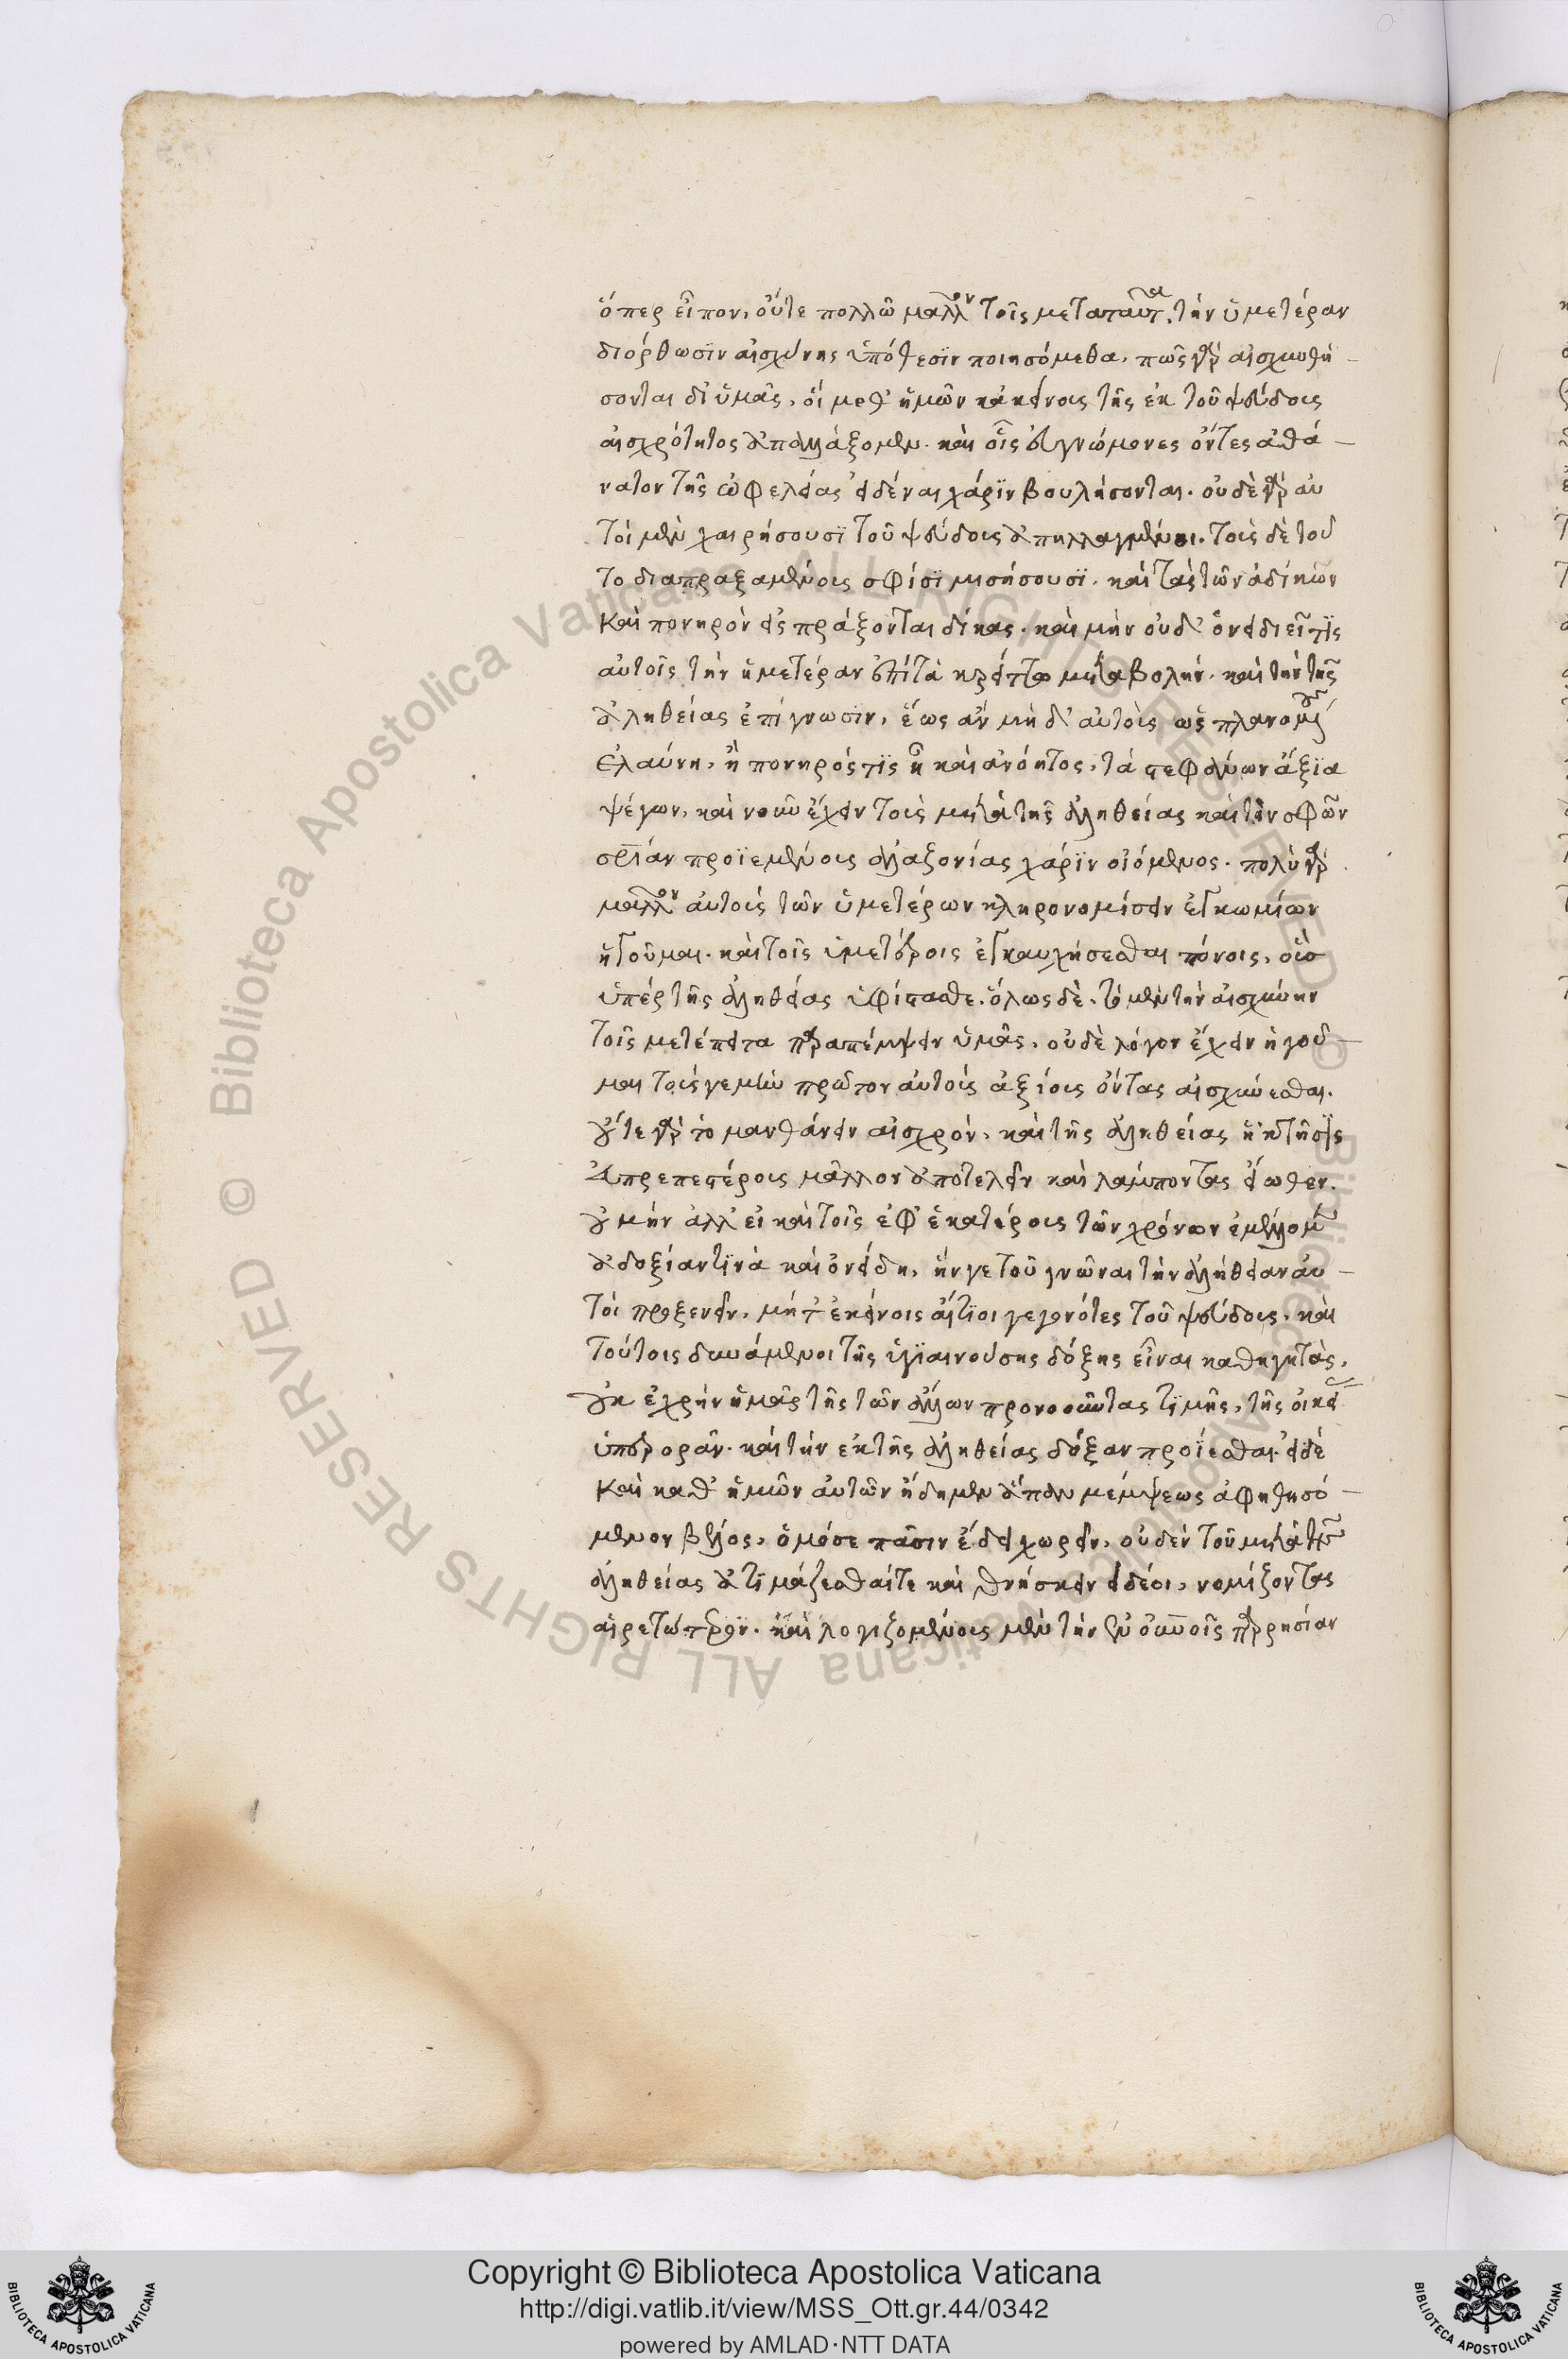 ὅπερ εἶπον, οὔτε πολλῶ μᾶλλον τοῖς μεταταῦτα, τὴν ὑμετέραν
διόρθωσϊν αἰσχύνης ὑπόθεσϊν ποιησόμεθα. πῶς γὰρ αἰσχυνθή-
σονται δι' ὑμᾶς, οἱ μεθ' ἡμῶν κἀκείνους τῆς ἐκ τοῦ ψεύδους
αἰσχρότητος ἀπαλλάξομεν. καὶ οἷς εὐγνώμονες ὄντες ἀθά-
νατον τῆς ὠφελείας εἰδέναι χάρϊν βουλήσονται. οὐδὲ γὰρ αὐ
τοὶ μὲν χαιρήσουσϊ τοῦ ψεύδους ἀπηλλαγμένοι. τοὺς δὲ τοῦ
το διαπραξαμένους σφίσϊ μισήσουσϊ. καὶ τὰς τῶν ἀδίκων
καὶ πονηρὸν εἰσπράξονται δίκας. καὶ μὴν οὐδ' ὀνειδιεῖ τϊς
αὐτοῖς τὴν ἡμετέραν ἐπὶ τὰ κρείττω μεταβολήν. καὶ τὴν τῆς
ἀληθείας ἐπίγνωσϊν, ἕως ἂν μὴ δ' αὐτοὺς ὡς πλανομένους
ἐλαύνη, ἢ πονηρός τϊς ἢ καὶ ἀνόητος, τὰ στεφάνων ἄξϊα
ψέγων, καὶ νοῦν ἔχειν τοὺς μετὰ τῆς ἀληθείας καὶ τὴν σφῶν
σρίαν προϊεμένους ἀλαζονίας χάρϊν οἰόμενος. πολὺ γὰρ
μᾶλλον αὐτοὺς τῶν ὑμετέρων κληρονομήσειν ἐγκωμίων
ἡγοῦμαι. καὶ τοῖς ὑμετέροις ἐγκαυχήσεσθαι πόνοις, οὓς
ὑπὲρ τῆς ἀληθείας ὑφίστασθε. ὅλως δὲ, τὸ μὲν τὴν αἰσχύνην
τοῖς μετέπειτα παραπέμψειν ὑμᾶς, οὐδὲ λόγον ἔχειν ἡγοῦ-
μαι τούς γε μὴν πρῶτον αὐτοὺς ἀξίους ὄντας αἰσχύνεσθαι.
οὔτε γὰρ τὸ μανθάνειν αἰσχρὸν, καὶ τῆς ἀληθείας ἡ κτῆσϊς
εὐπρεπεστέρους μᾶλλον ἀποτελεῖν καὶ λάμποντας εἴωθεν.
οὐ μὴν ἀλλ' εἰ καὶ τοῖς ἐφ' ἑκατέροις τῶν χρόνων ἐμέλλομεν
ἀδοξίαν τϊνὰ καὶ ὀνείδη, ἕν γε τοῦ γνῶναι τὴν ἀλήθειαν αὐ-
τοὶ προξενεῖν, μήτ' ἐκείνοις αἴτϊοι γεγονότες τοῦ ψεύδους, καὶ
τούτοις δυνάμενοι τῆς ὑγϊαινούσης δόξης εἶναι καθηγητὰς,
οὐκ ἐχρῆν ἡμᾶς τῆς τῶν ἄλλων προνοοῦντας τϊμῆς, τῆς οἰκείας
ὑπερορᾶν. καὶ τὴν ἐκ τῆς ἀληθείας δόξαν προΐεσθαι. εἰ δὲ
καὶ καθ' ἡμῶν αὐτῶν ᾔδημεν ἅπαν μέμψεως ἀφηθησό-
μενον βέλος, ὁμόσε πᾶσιν ἔδει χωρεῖν, οὐδὲν τοῦ μετὰ τῆς
ἀληθείας ἀτϊμάζεσθαί τε καὶ θνήσκειν εἰ δέοι, νομίζοντας
αἱρετώτερον. καὶ λογιζομένους μὲν τὴν ἐν οὐνοῖς παρρησίαν